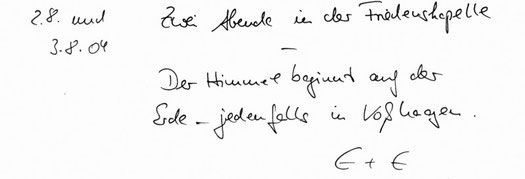 2.8. und Zwei Abende in der Friedenskapelle
3.8.04
–
Der Himmel beginnt auf der
Erde – jedenfalls in Voßhagen.
E + E